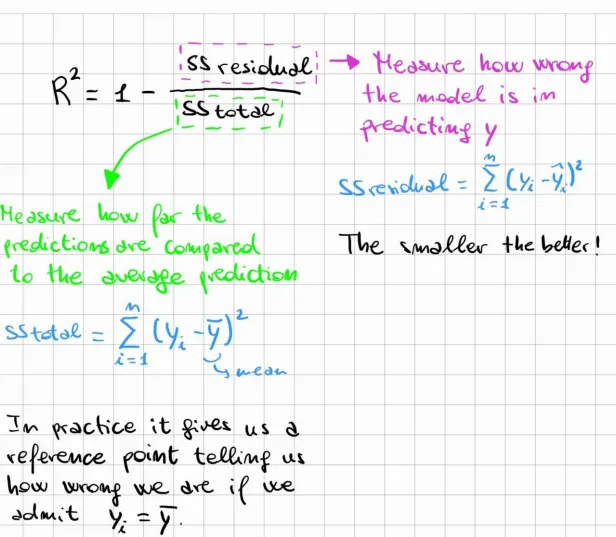 R² = 1 - SS residual / SS total
→ Measure how wrong
the model is in
predicting y
SS residual = n Σ i=1 (yi - ŷi)²
The smaller the better!
Measure how far the
predictions are compared
to the average prediction
SS total = n Σ i=1 (yi - ȳ)²
↳ mean
In practice it gives us a
reference point telling us
how wrong we are if we
admit yi = ȳ.